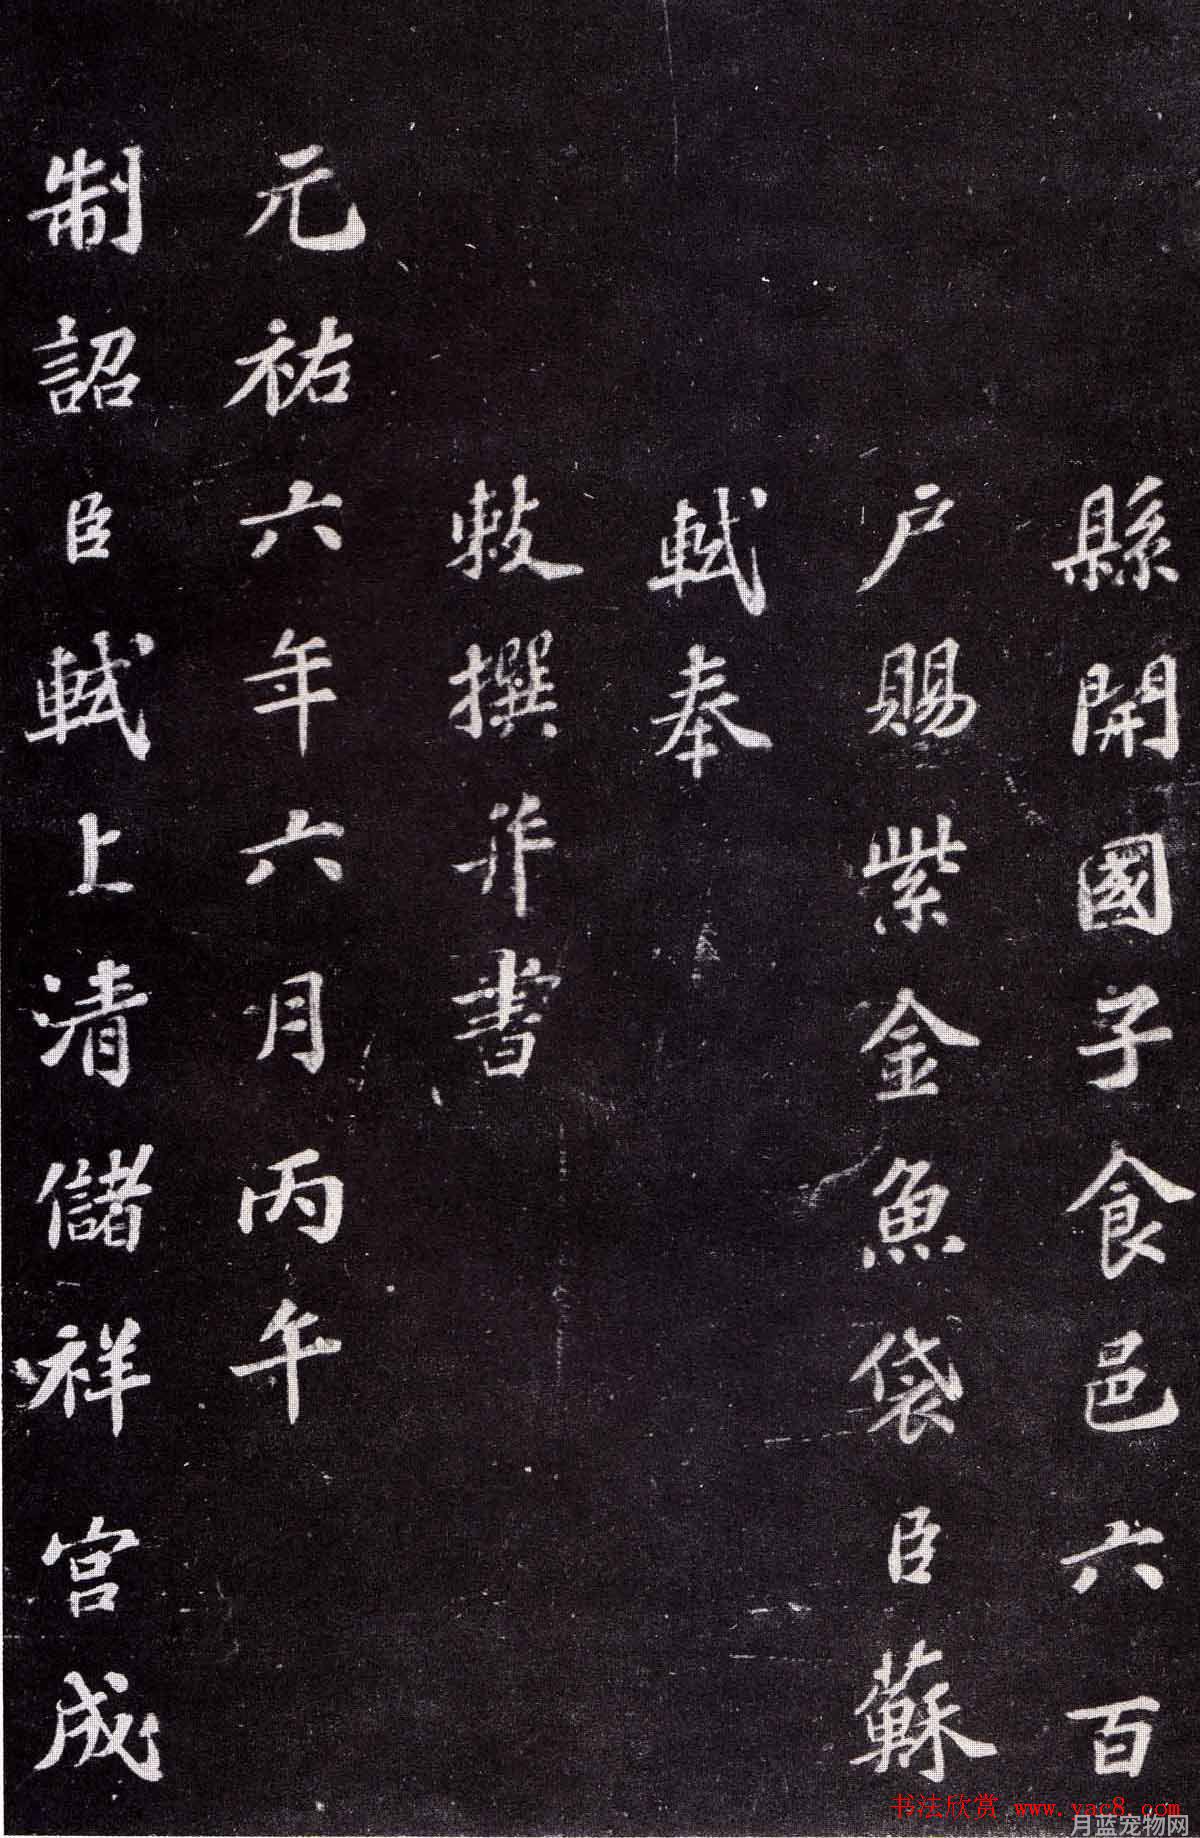 縣開國子食邑六百
户賜紫金魚袋臣蘇
軾奉
敕撰并書
元祐六年六月丙午
制詔臣軾上清儲祥宮成
书法欣赏 www.yac8.com
月蓝宠物网